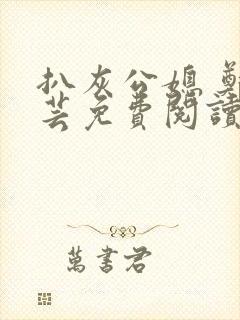 扒灰公媳
芸免費閱讀
萬書君